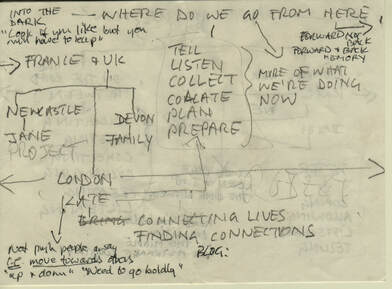 INTO THE DARK
"Look if you like but you will have to leap"
WHERE DO WE GO FROM HERE
FORWARD NOT BACK
FORWARD & BACK
MEMORY
→ FRANCE & UK
TELL
LISTEN
COLLECT
COLLATE
PLAN
PREPARE
MORE OF WHAT
WE'RE DOING
NOW
NEWCASTLE
JANE
PROJECT
DEVON
FAMILY
LONDON
KATE
BRING CONNECTING LIVES
FINDING CONNECTIONS
BLOG:
Not push people away
I.E. move towards others
"up & down" "Need to go boldly"